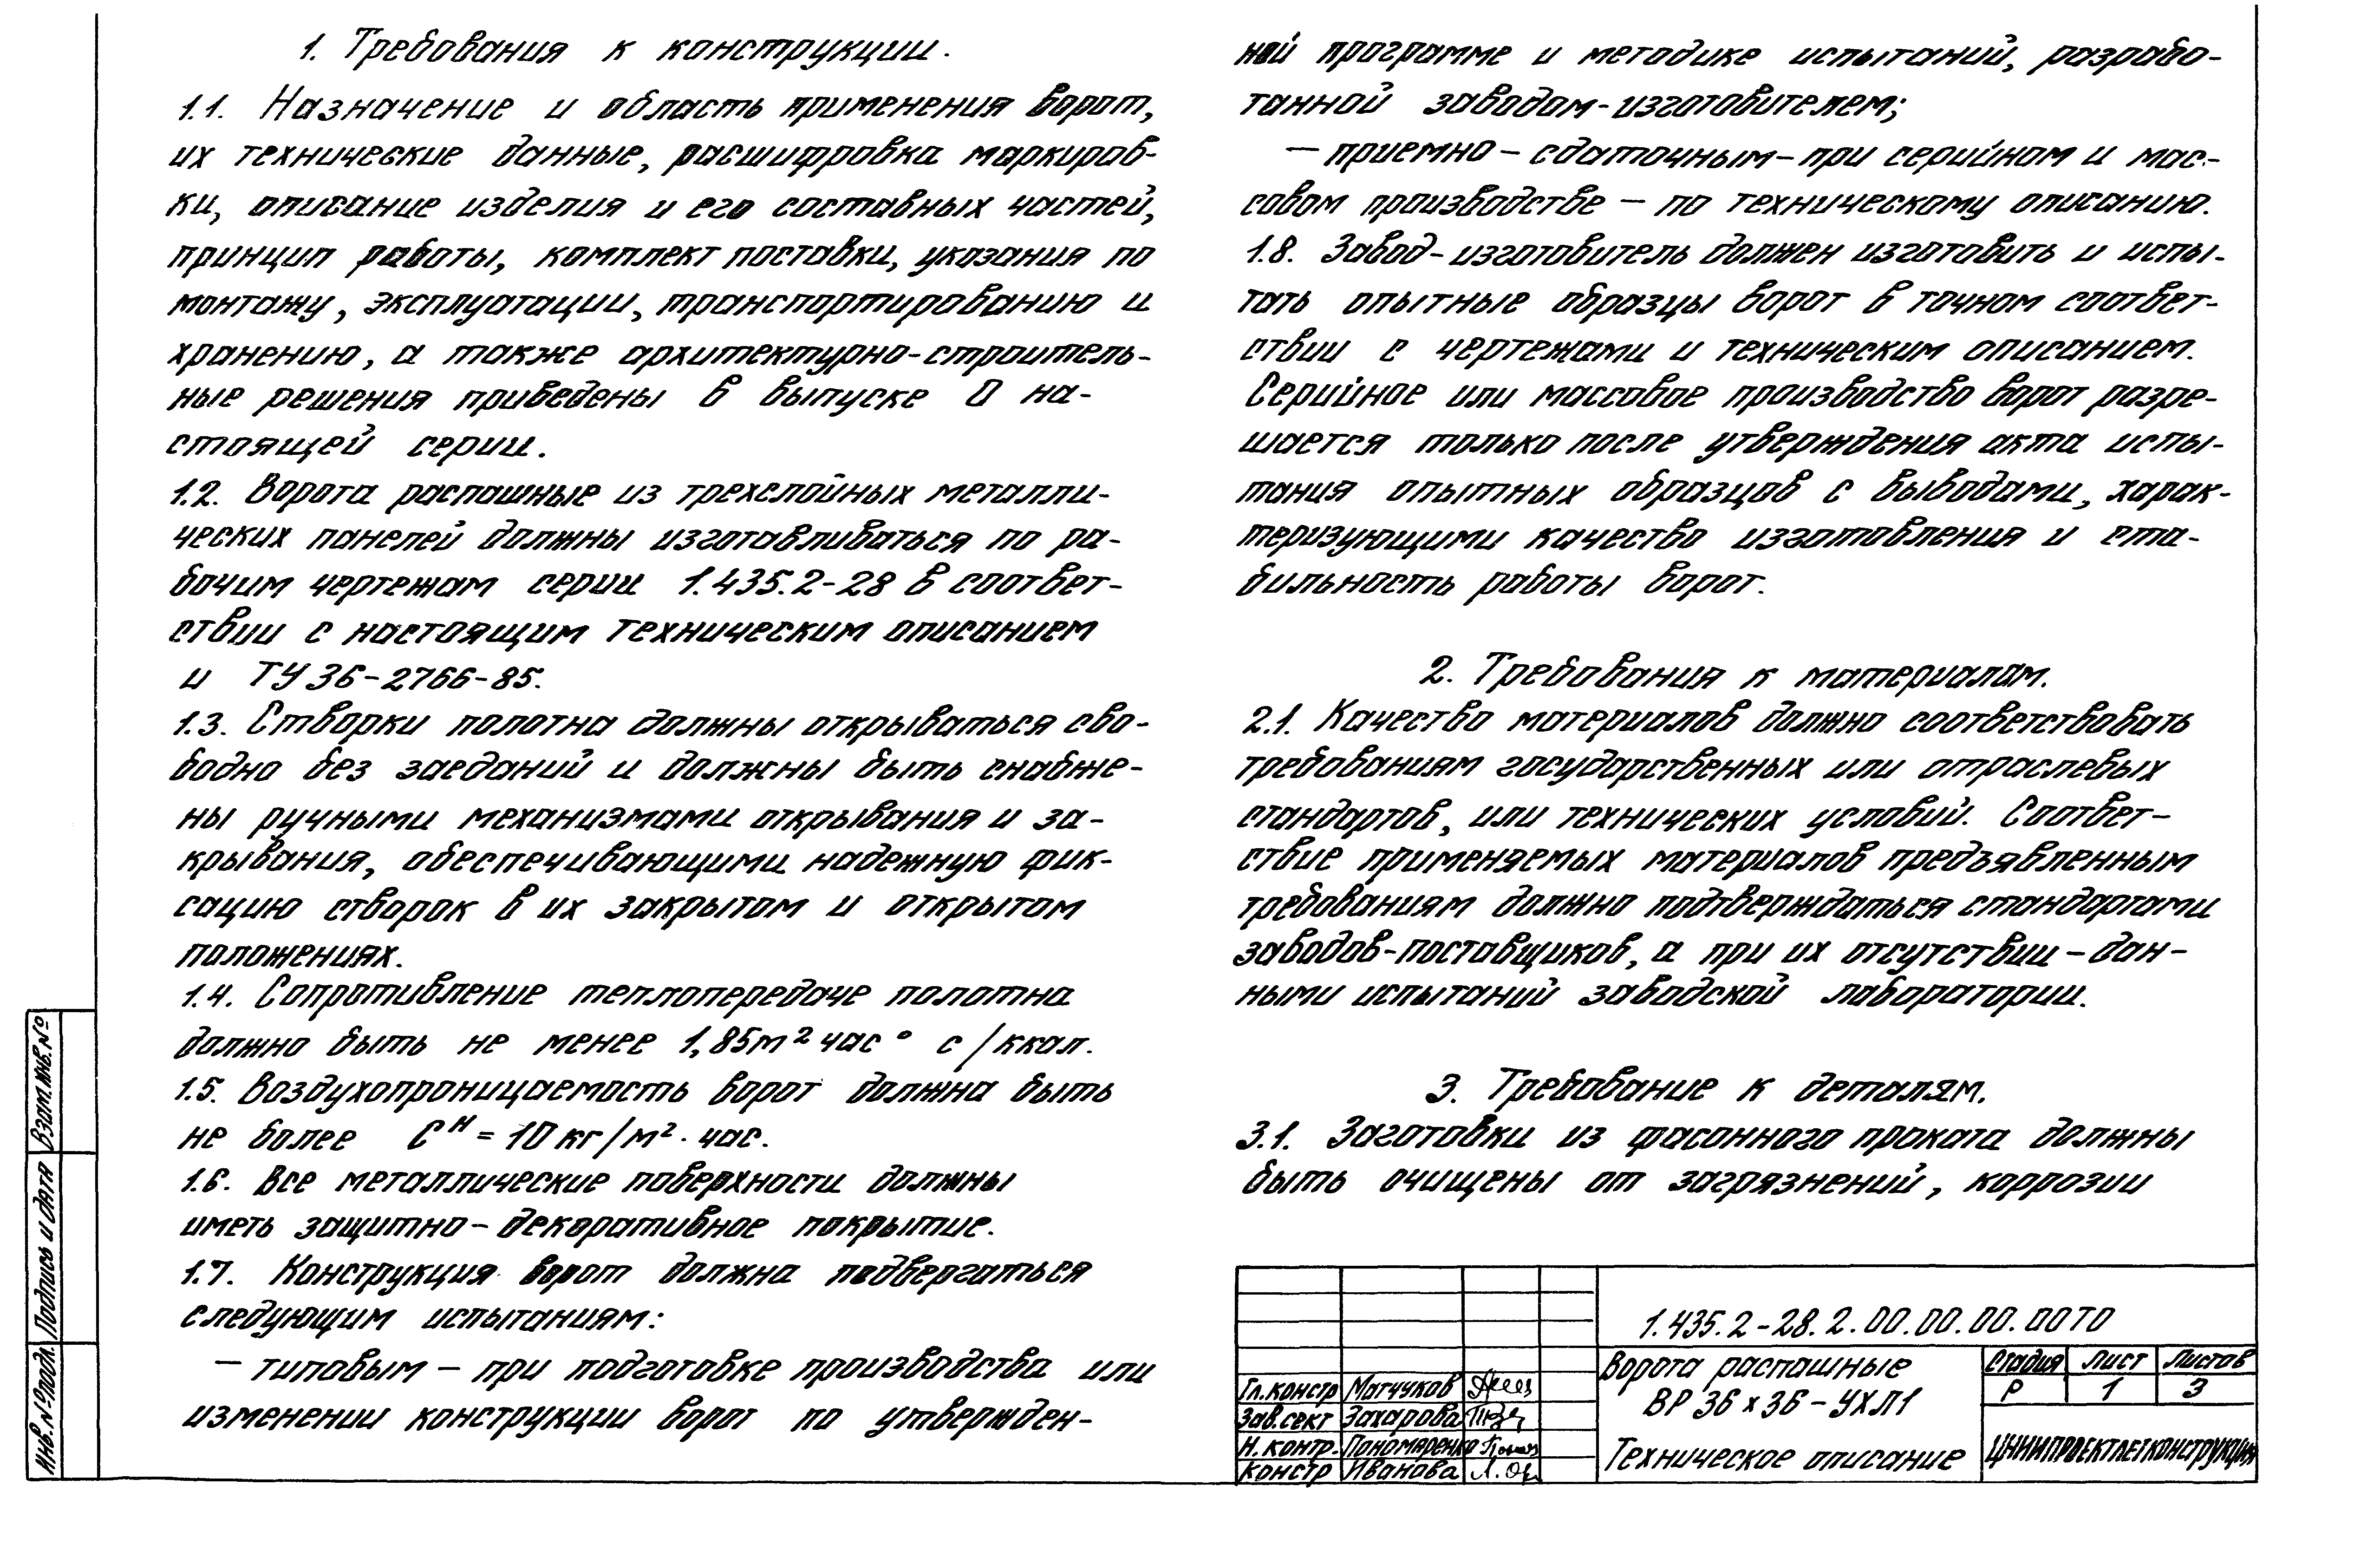 1. Требования к конструкции.
1.1. Назначение и область применения ворот,
их технические данные, расшифровка маркиров-
ки, описание изделия и его составных частей,
принцип работы, комплект поставки, указания по
монтажу, эксплуатации, транспортированию и
хранению, а также архитектурно-строитель-
ные решения приведены в выпуске 0 на-
стоящей серии.
1.2. Ворота распашные из трехслойных металли-
ческих панелей должны изготавливаться по ра-
бочим чертежам серии 1.435.2-28 в соответ-
ствии с настоящим техническим описанием
и ТУ 36-2766-85.
1.3. Створки полотна должны открываться сво-
бодно без заеданий и должны быть снабже-
ны ручными механизмами открывания и за-
крывания, обеспечивающими надежную фик-
сацию створок в их закрытом и открытом
положениях.
1.4. Сопротивление теплопередаче полотна
должно быть не менее 1,85м² час ° с/ккал.
1.5. Воздухопроницаемость ворот должна быть
не более Cᴴ = 10 кг/м² · час.
1.6. Все металлические поверхности должны
иметь защитно-декоративное покрытие.
1.7. Конструкция ворот должна подвергаться
следующим испытаниям:
— типовым — при подготовке производства или
изменении конструкции ворот по утвержден-
ной программе и методике испытаний, разрабо-
танной заводом-изготовителем;
— приемно-сдаточным - при серийном и мас-
совом производстве — по техническому описанию.
1.8. Завод-изготовитель должен изготовить и испы-
тать опытные образцы ворот в точном соответ-
ствии с чертежами и техническим описанием.
Серийное или массовое производство ворот разре-
шается только после утверждения акта испы-
тания опытных образцов с выводами, харак-
теризующими качество изготовления и ста-
бильность работы ворот.
2. Требования к материалам.
2.1. Качество материалов должно соответствовать
требованиям государственных или отраслевых
стандартов, или технических условий. Соответ-
ствие применяемых материалов предъявленным
требованиям должно подтверждаться стандартами
заводов-поставщиков, а при их отсутствии - дан-
ными испытаний заводской лаборатории.
3. Требование к деталям.
3.1. Заготовки из фасонного проката должны
быть очищены от загрязнений, коррозии
1.435.2-28.2.00.00.00.00ТО
Ворота распашные
ВР 36 х 36 - УХЛ1
Техническое описание
Стадия Лист Листов
Р 1 3
ЦНИИПРОЕКТЛЕГКОНСТРУКЦИЯ
Гл. констр Матчуков
Зав. сект Захарова
Н. контр. Пономаренко
Констр Иванова
Взам. инв. №
Подпись и дата
Инв. № подл.